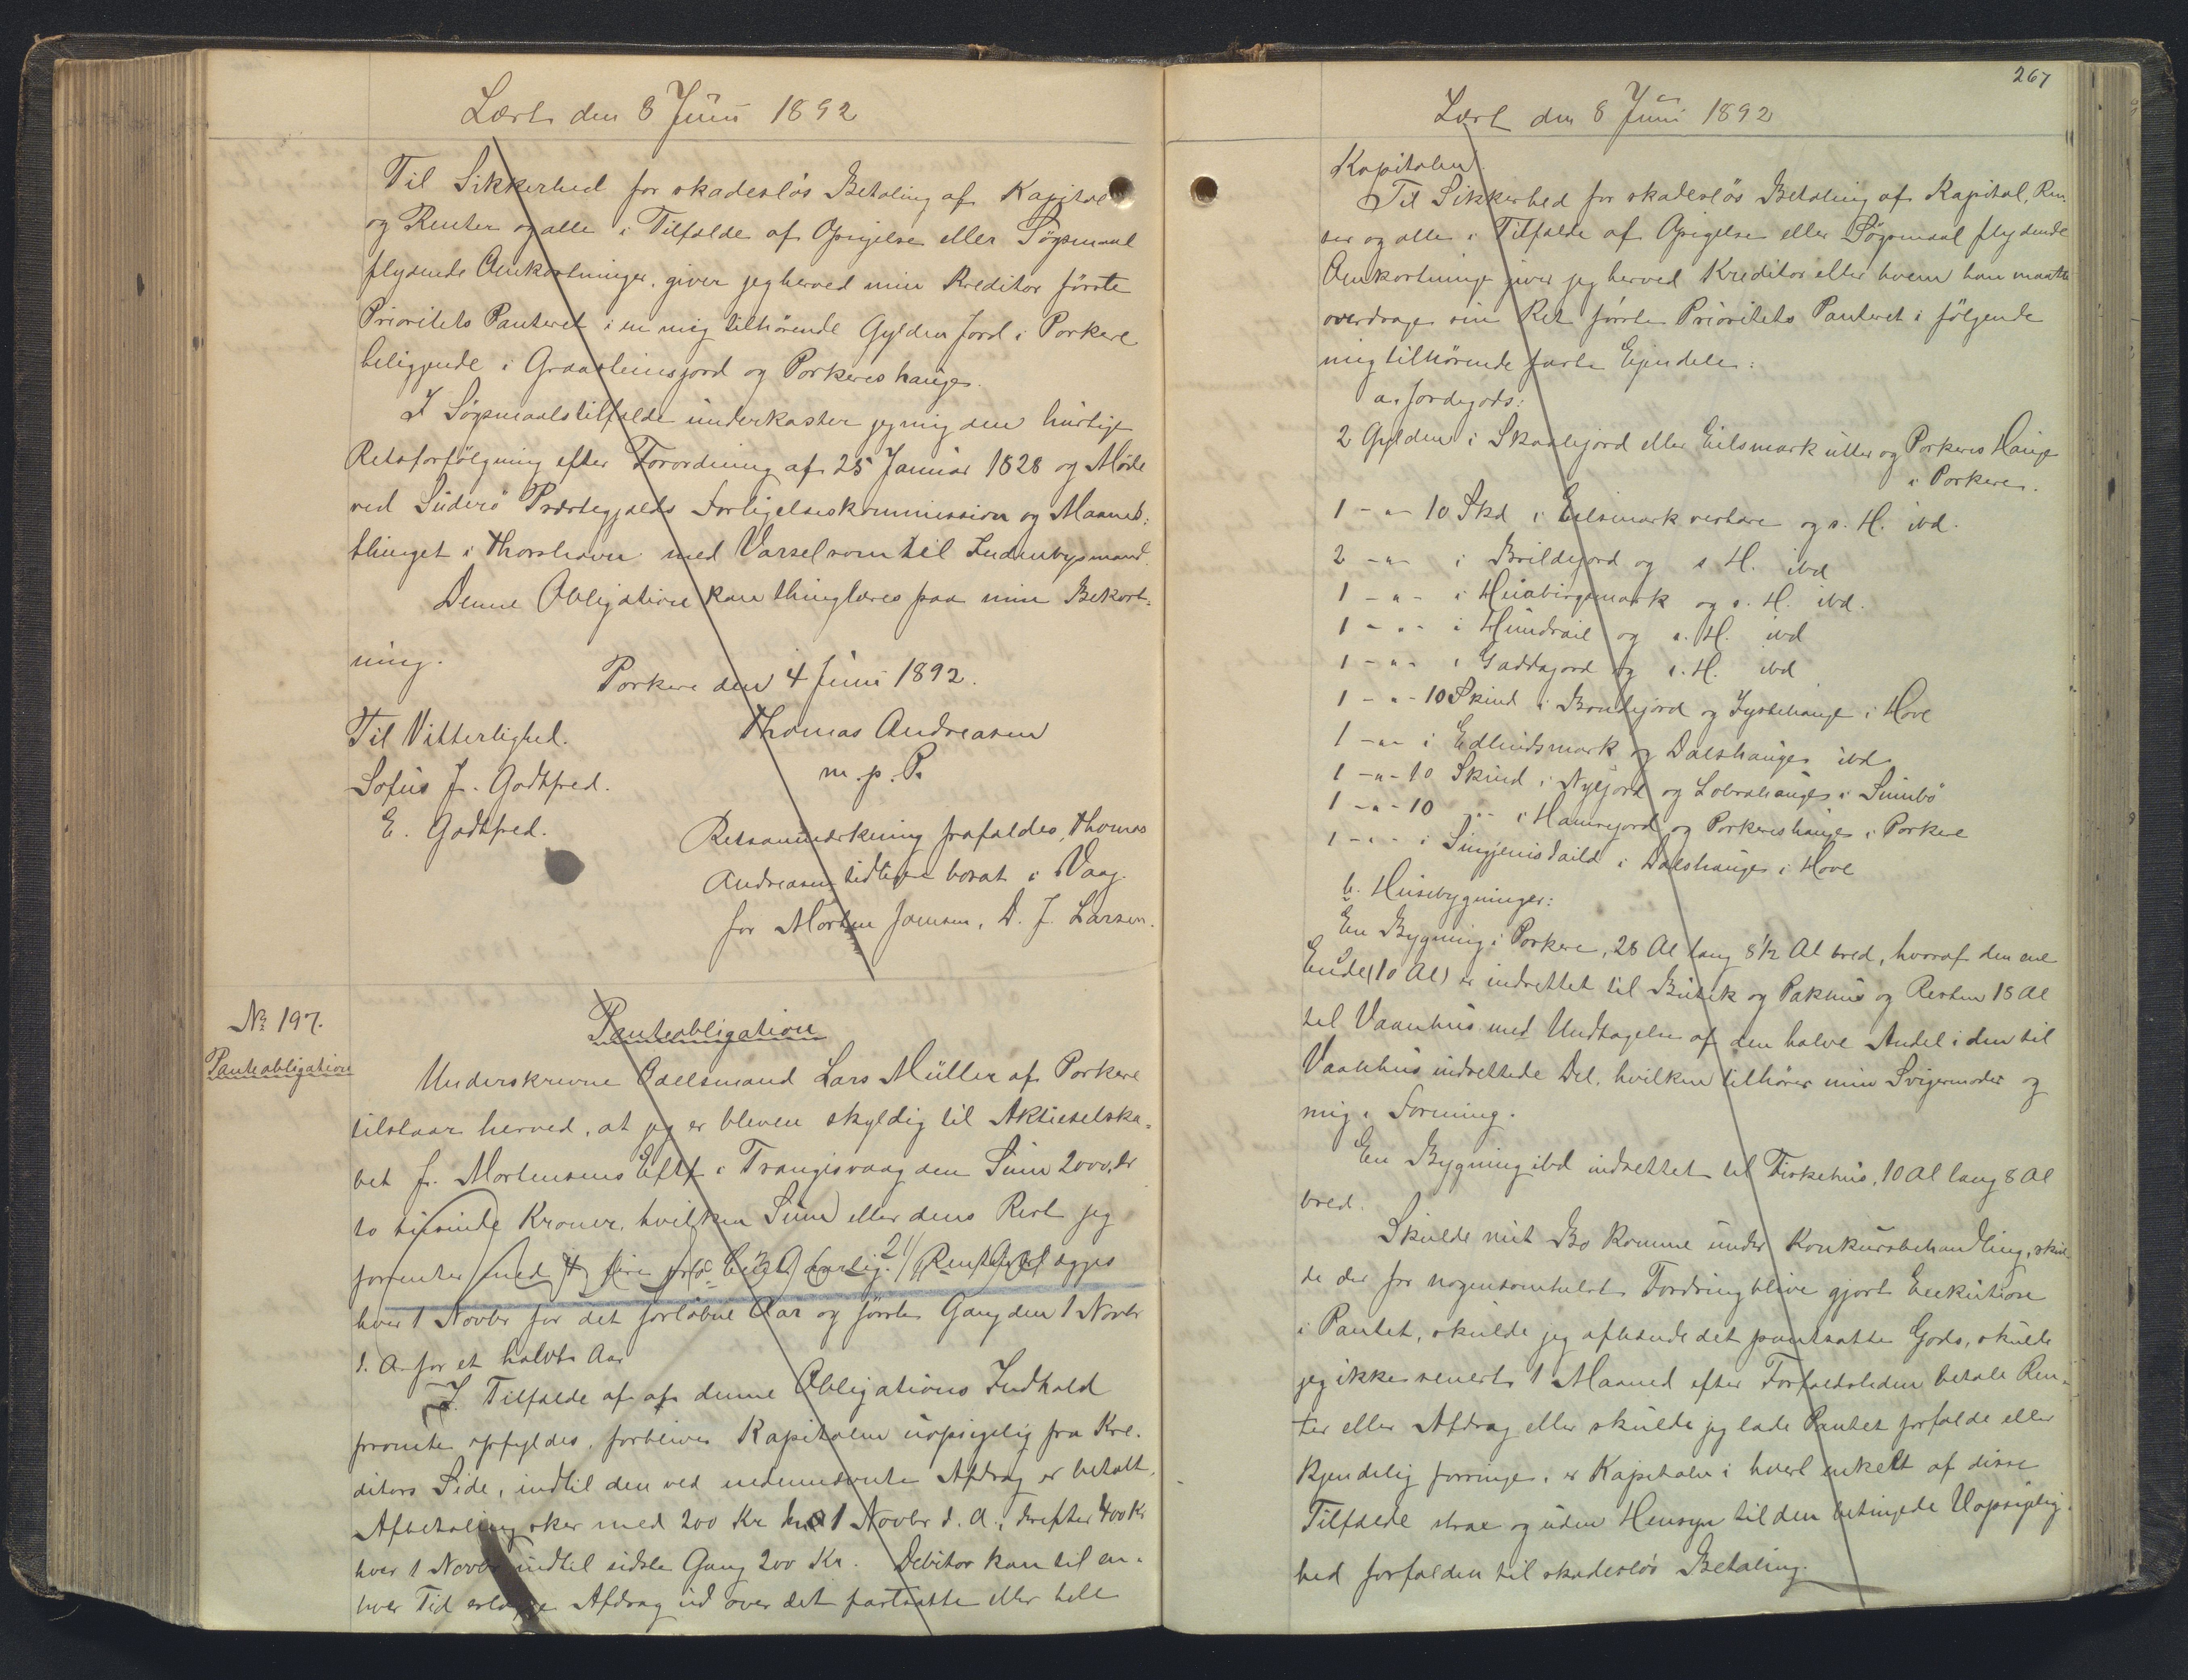 Læst den 8 Juni 1892
Til Sikkerhed for skadeslös Betaling af Kapital
og Renter og alle i Tilfælde af Opsigelse eller Søgsmaal
flydende Omkostninger, giver jeg herved min Kreditor förste
Prioritets Panteret i en mig tilhørende Gylden Jord i Porkere
beliggende i Graasteinsjord og Porkeres hauge.
I Sögsmaalstilfælde underkaster jeg mig den hurtige
Retsforfölgning efter Forordning af 25 Januar 1828 og Møde
ved Suderö Præstegjælds Forligelseskommission og Maaneds:
thinget i Thorshavn med Varsel som til Indenbysmand.
Denne Obligation kan thinglæses paa min Bekost-
ning.
Porkere den 4 Juni 1892.
Til Vitterlighed.
Thomas Andreasen
Sofus J. Godtfred.
m. p. P.
E. Godtfred.
Retsanmærkning frafaldes, Thomas
Andreasen tidligere bosat i Vaag.
for Morten Joensen, D. J. Larsen.
№ 197.
Panteobligation
Panteobligation
Underskrevne Odelsmand Lars Müller af Porkere
tilstaar herved, at jeg er bleven skyldig til Aktieselska-
bet Fr. Mortensens Eftf i Trangisvaag den Sum 2000 Kr
to tusinde Kroner, hvilken Sum eller dens Rest jeg
forrenter med 4 fire pro Cent aarlig. Renten erlægges
hver 1 Novbr for det forløbne Aar og förste Gang den 1 Novbr
d. A for et halvt Aar
I Tilfælde af af denne Obligations Indhold
promte opfyldes, forbliver Kapitalen uopsigelig fra Kre-
ditors Side, indtil den ved nedennævnte Afdrag er betalt.
Afbetaling sker med 200 Kr den 1 Novbr d. A., derefter 400 Kr
hver 1 Novbr indtil sidste Gang 200 Kr. Debitor kan til en-
hver Tid erlægge Afdrag ud over det fastsatte eller hele
267
Læst den 8 Juni 1892
Kapitalen
Til Sikkerhed for skadeslös Betaling af Kapital, Ren-
ter og alle i Tilfælde af Opsigelse eller Søgsmaal flydende
Omkostninge giver jeg herved Kreditor eller hvem han maatte
overdrage sin Ret förste Prioritets Panteret i fölgende
mig tilhörende faste Ejendele:
a. Jordegods:
2 Gylden i Skaalejord eller Eilsmark utter og Porkeres Hauge
i Porkere.
1 - " - 10 Skd i Eilsmark vestare og s. H. ibd.
2 - " - i Breildejord og s H. ibd
1 - " - i Huabirgsmark og s. H. ibd.
1 - " - i Hundrail og s. H. ibd
1 - " - i Gaddajord og s. H. ibd
1 - " - 10 Skind i Bondejord og Tystehauge i Hove
1 - " - i Edlindsmark og Dalshauge ibd
1 - " - 10 Skind i Nyejord og Lobrahauge i Sumbö
1 - " - 10 " - i Hamrejord og Porkereshauge i Porkere
1 - " - i Singjenis Daild i Dalshauge i Hove
b. Husebygninger:
En Bygning i Porkere, 28 Al lang 8½ Al bred, hvoraf den ene
Ende (10 Al) er indrettet til Butik og Pakhus og Resten 18 Al
til Vaanhus med Undtagelse af den halve Andel i den til
Vaanhus indrettede Del, hvilken tilhører min Svigermoder og
mig i Forening.
En Bygning ibd indrettet til Fiskehus, 10 Al lang 8 Al
bred.
Skulde mit Bo komme under Konkursbehandling, skul-
de der for nogensomhelst Fordring blive gjort Exekution
i Pantet, skulde jeg afhænde det pantsatte Gods, skulde
jeg ikke senest 1 Maaned efter Forfaldstiden betale Ren-
ter eller Afdrag eller skulde jeg lade Pantet forfalde eller
kjendelig forringe, er Kapitalen i hvert enkelt af disse
Tilfælde strax og uden Hensyn til den betingede Uopsigelig-
hed forfalden til skadeslös Betaling.